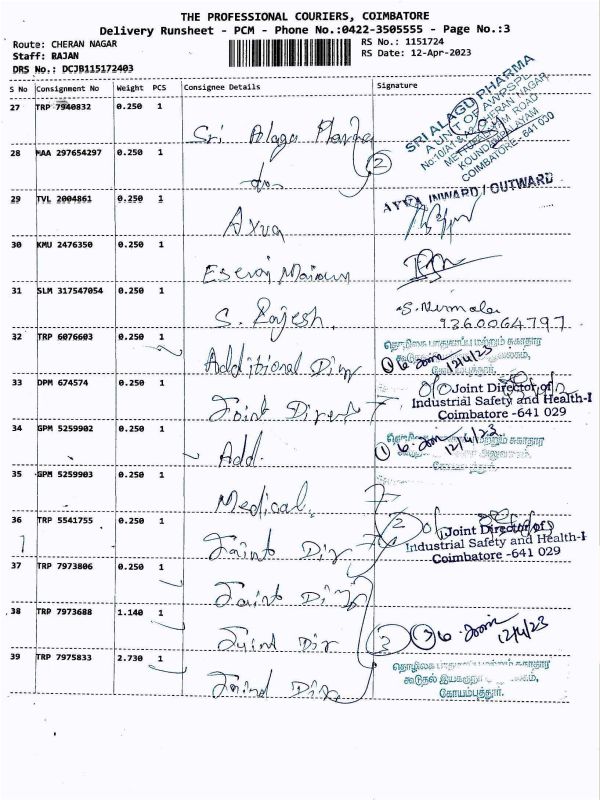 THE PROFESSIONAL COURIERS, COIMBATORE
Delivery Runsheet - PCM - Phone No.:0422-3505555 - Page No.:3
Route: CHERAN NAGAR RS No.: 1151724
Staff: RAJAN RS Date: 12-Apr-2023
DRS No.: DCJB115172403
S No Consignment No Weight PCS Consignee Details Signature
27 TRP 7940832 0.250 1 Sri Alagu
SRI ALAGU PHARMA
METTUPALAYAM ROAD
KOUNDAMPALAYAM
COIMBATORE - 641 030
28 MAA 297654297 0.250 1 do 2
29 TVL 2004861 0.250 1 Ayya
AYYA INWARD / OUTWARD
30 KMU 2476350 0.250 1
31 SLM 317547054 0.250 1 S. Rajesh. S. Nirmala
9360064797
32 TRP 6076603 0.250 1 Additional Dir
தொழிலக பாதுகாப்பு மற்றும் சுகாதார
12/4/23
33 DPM 674574 0.250 1 Joint Direct
Joint Director of
Industrial Safety and Health-I
Coimbatore -641 029
34 GPM 5259902 0.250 1 Add.
1 12/4/23
35 GPM 5259903 0.250 1 Medical.
36 TRP 5541755 0.250 1 Joint Dir 2
Joint Director of
Industrial Safety and Health-I
Coimbatore -641 029
37 TRP 7973806 0.250 1 Joint Dir
38 TRP 7973688 1.140 1 Joint Dir 3
12/4/23
39 TRP 7975833 2.730 1 Joind Dir
தொழிலக பாதுகாப்பு மற்றும் சுகாதார
கூடுதல்
கோயம்புத்தூர்.